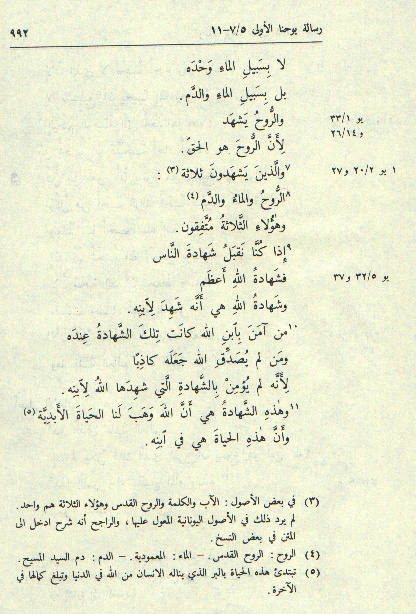 رسالة يوحنا الأولى ٧/٥-١١ ٩٩٢
لا بِسَبيلِ الماءِ وَحْدَه
بل بِسَبيلِ الماءِ والدَّم.
والرُّوحُ يَشهَد
يو ٣٣/١
لِأَنَّ الرُّوحَ هو الحَقّ.
و٢٦/١٤
٧والَّذينَ يَشهَدونَ ثلاثة (٣) :
١ يو ٢٠/٢ و٢٧
٨الرُّوحُ والماءُ والدَّم (٤)
وهٰؤُلاءِ الثَّلاثةُ مُتَّفِقون.
٩إِذا كُنَّا نَقبَلُ شَهادةَ النَّاس
فشَهادةُ اللهِ أَعظَم
يو ٣٢/٥ و٣٧
وشَهادةُ اللهِ هي أَنَّه شَهِدَ لِٱبنِه.
١٠من آمَنَ بِٱبنِ اللهِ كانَت تِلكَ الشَّهادةُ عِندَه
ومَن لم يُصَدِّقِ اللهَ جَعَلَه كاذِبًا
لِأَنَّه لم يُؤمِنْ بِالشَّهادةِ الَّتي شَهِدَها اللهُ لِٱبنِه.
١١وهٰذِهِ الشَّهادةُ هي أَنَّ اللهَ وَهَبَ لَنا الحَياةَ الأَبدِيَّة (٥)
وأَنَّ هٰذِهِ الحَياةَ هي في ٱبنِه.
(٣) في بعض الأصول : الآب والكلمة والروح القدس وهؤلاء الثلاثة هم واحد.
لم يرد ذلك في الأصول اليونانية المعول عليها ، والراجح أنه شرح ادخل الى
المتن في بعض النسخ.
(٤) الروح : الروح القدس. – الماء : المعمودية. – الدم : دم السيد المسيح.
(٥) تبتدئ هذه الحياة بالبر الذي يناله الانسان من الله في الدنيا وتبلغ كمالها في
الآخرة.